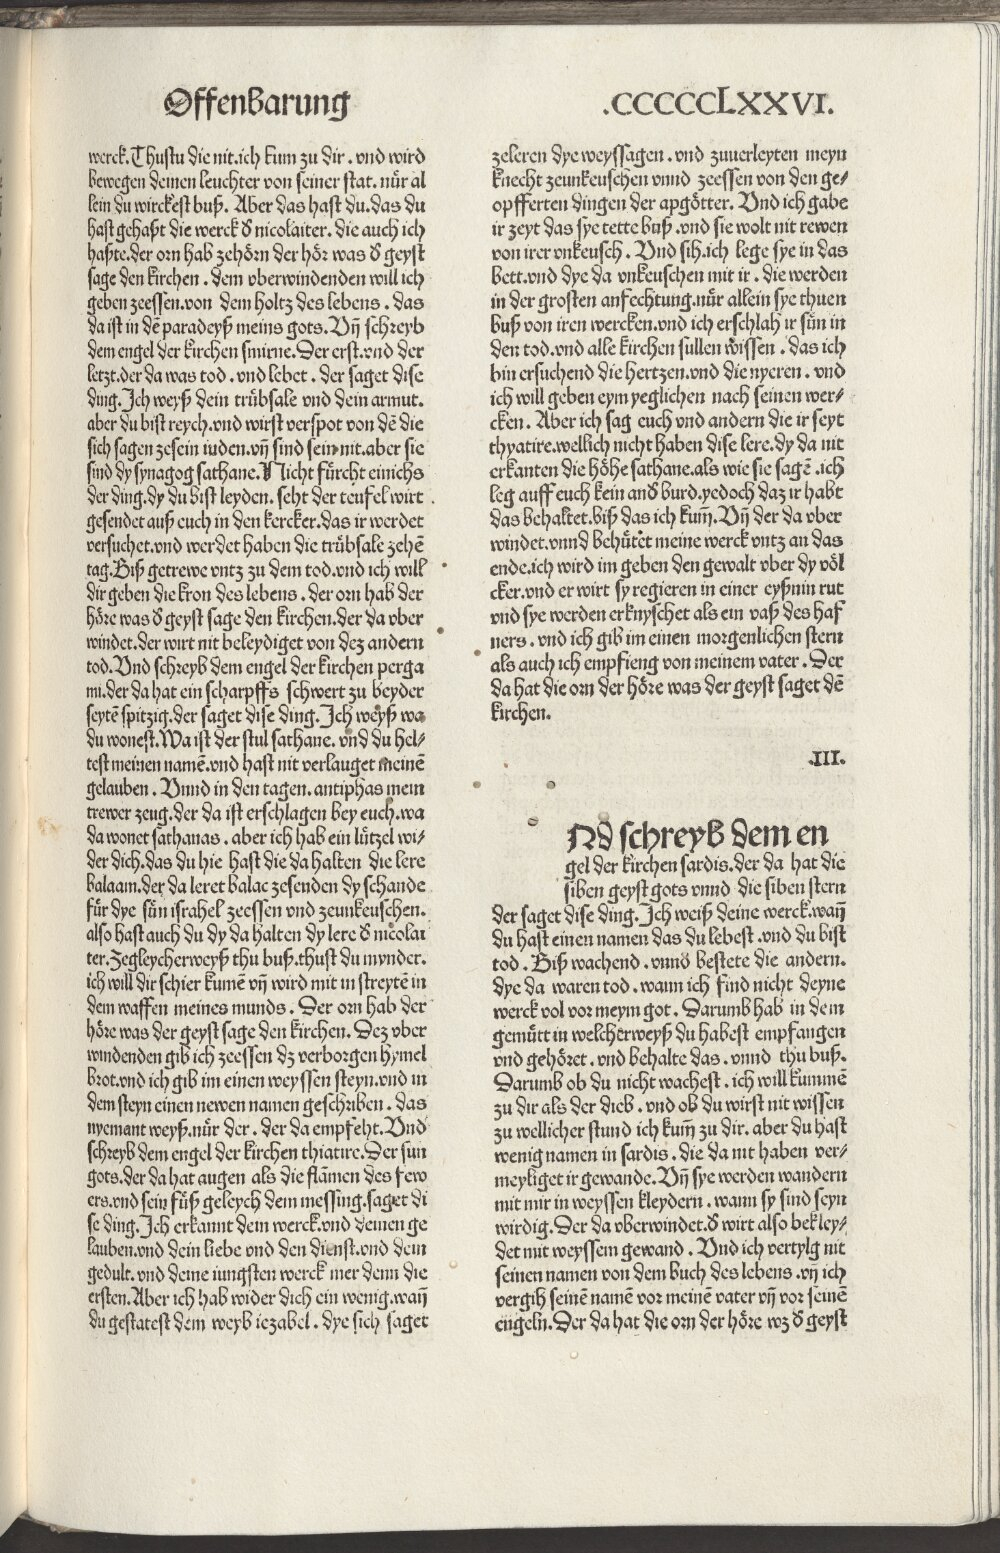 Offenbarung
.CCCCCCLXXVI.
werck. Thustu die nit. ich kum zu dir . vnd wird
bewegen deinen leuchter von seiner stat. nür al
lein du wirckest buß. Aber das hast du. das du
hast gehaßt die werck d̕ nicolaiter. die auch ich
haßte. der orn hab zehörn der hör was d̕ geyst
sage den kirchen . dem vberwindenden will ich
geben zeessen. von dem holtz des lebens . das
da ist in dē paradeyß meins gots. Vn̄ schreyb
dem engel der kirchen smirne. Der erst. vnd der
letzt. der da was tod . vnd lebet . der saget dise
ding. Ich weyß dein trübsale vnd dein armut.
aber du bist reych. vnd wirst verspot von dē die
sich sagen zesein iuden. vn̄ sind sein nit. aber sie
sind dy synagog sathane. Nicht fürcht einichs
der ding. dy du bist leyden . seht der teufel wirt
gesendet auß euch in den kercker. das ir werdet
versuchet. vnd werdet haben die trübsale zehē
tag. Biß getrewe vntz zu dem tod. vnd ich will
dir geben die kron des lebens . der orn hab der
höre was d̕ geyst sage den kirchen. der da vber
windet. der wirt nit beleydiget von dez andern
tod. Vnd schreyb dem engel der kirchen perga
mi. der da hat ein scharpffs schwert zu beyder
seytē spitzig. der saget dise ding. Ich weyß wa
du wonest. Wa ist der stul sathane. vnd du hel⸗
test meinen namē. vnd hast nit verlauget meinē
gelauben . Vnnd in den tagen. antiphas mein
trewer zeug. der da ist erschlagen bey euch. wa
da wonet sathanas . aber ich hab ein lützel wi⸗
der dich. das du hie hast die da halten die lere
balaam. der da leret balac zesenden dy schande
für dye sün israhel zeessen vnd zeunkeuschen.
also hast auch du dy da halten dy lere d̕ nicolai
ter. Zegleycherweyß thu buß. thust du mynder.
ich will dir schier kumē vn̄ wird mit in streytē in
dem waffen meines munds . Der orn hab der
höre was der geyst sage den kirchen. Dez vber
windenden gib ich zeessen dz verborgen hymel
brot. vnd ich gib im einen weyssen steyn. vnd in
dem steyn einen newen namen geschriben . das
nyemant weyß. nür der . der da empfeht. Vnd
schreyb dem engel der kirchen thiatire. Der sun
gots. der da hat augen als die flāmen des few
ers. vnd sein füß geleych dem messing. saget di
se ding. Ich erkannt dein werck. vnd deinen ge
lauben. vnd dein liebe vnd den dienst. vnd dein
gedult. vnd deine iungsten werck mer denn die
ersten. Aber ich hab wider dich ein wenig. wan̄
du gestatest dem weyb iezabel . dye sich saget
zeleren dye weyssagen . vnd zuuerleyten meyn
knecht zeunkeuschen vnnd zeessen von den ge⸗
opfferten dingen der apgötter. Vnd ich gabe
ir zeyt das sye tette buß .vnd sie wolt nit rewen
von irer vnkeusch . Vnd sih. ich lege sye in das
bett. vnd dye da vnkeuschen mit ir . die werden
in der grosten anfechtung. nür allein sye thuen
buß von iren wercken. vnd ich erschlah ir sün in
den tod. vnd alle kirchen sullen wissen . das ich
bin ersuchend die hertzen. vnd die nyeren . vnd
ich will geben eym yeglichen nach seinen wer⸗
cken . Aber ich sag euch vnd andern die ir seyt
thyatire. wellich nicht haben dise lere. dy da nit
erkanten die höhe sathane. als wie sie sagē . ich
leg auff euch kein and̕ burd. yedoch daz ir habt
das behaltet. biß das ich kum̄. Vn̄ der da vber
windet. vnnd behütet meine werck vntz an das
ende. ich wird im geben den gewalt vber dy völ
cker. vnd er wirt sy regieren in einer eyßnin rut
vnd sye werden erknyschet als ein vaß des haf
ners . vnd ich gib im einen morgenlichen stern
als auch ich empfieng von meinem vater . Der
da hat die orn der höre was der geyst saget dē
kirchen.
.III.
Nd schreyb dem en
gel der kirchen sardis. der da hat die
siben geyst gots vnnd die siben stern
der saget dise ding. Ich weiß deine werck. wan̄
du hast einen namen das du lebest . vnd du bist
tod . Biß wachend . vnnd bestete die andern.
dye da waren tod . wann ich find nicht deyne
werck vol vor meym got . Darumb hab in dem
gemütt in welcherweyß du habest empfangen
vnd gehöret . vnd behalte das . vnnd thu buß.
Darumb ob du nicht wachest . ich will kummē
zu dir als der dieb . vnd ob du wirst nit wissen
zu wellicher stund ich kum̄ zu dir. aber du hast
wenig namen in sardis . die da nit haben ver⸗
meyliget ir gewande. Vn̄ sye werden wandern
mit mir in weyssen kleydern . wann sy sind seyn
wirdig. Der da vberwindet. d̕ wirt also bekley⸗
det mit weyssem gewand . Vnd ich vertylg nit
seinen namen von dem buch des lebens .vn̄ ich
vergih seinē namē vor meinē vater vn̄ vor seinē
engeln. Der da hat die orn der höre wz d̕ geyst